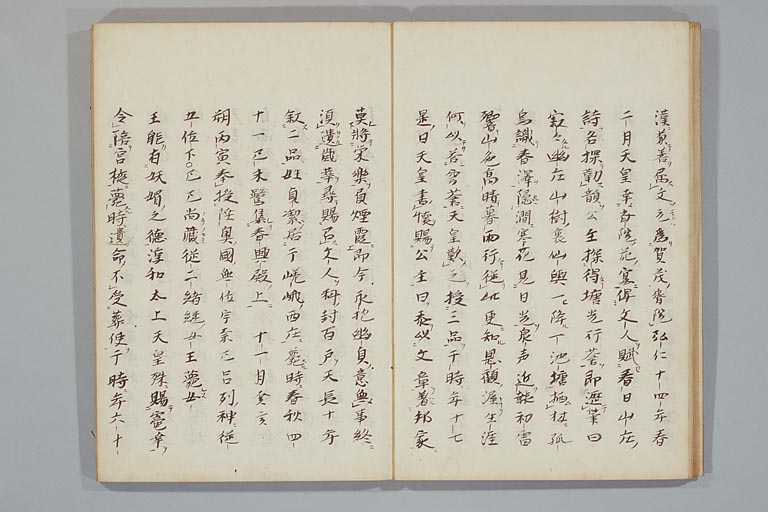 漢兼善屬文元爲賀茂齋院弘仁十四年春
二月天皇幸齋院花宴俾文人賦春日山莊
詩各探勒韻公主探得塘光行蒼即瀝葉曰
寂々幽庄山樹裏仙輿一降一池塘栖林孤
鳥識春澤隱澗寒花見日光泉声近報初雷
響山色高晴暮雨行從此更知恩顧渥生涯
何以荅穹蒼天皇歎之授三品于時年十七
是日天皇書懷賜公主曰忝以文章著邦家
莫將榮樂負煙霞即今永抱幽貞意無事終
須遣歳華尋賜召文人料封百戸天長十年
叙二品性貞潔居于嵯峨西庄薨時春秋四
十一己未鷖集春興殿上 十一月癸亥
朔丙寅奉授陸奥國無位宗奈己呂別神從
五位下○己巳尚藏從二位緒継女王薨女
王能有妖媚之德淳和太上天皇殊賜寵幸
令陪宮掖薨時遺命不受葬使于時年六十